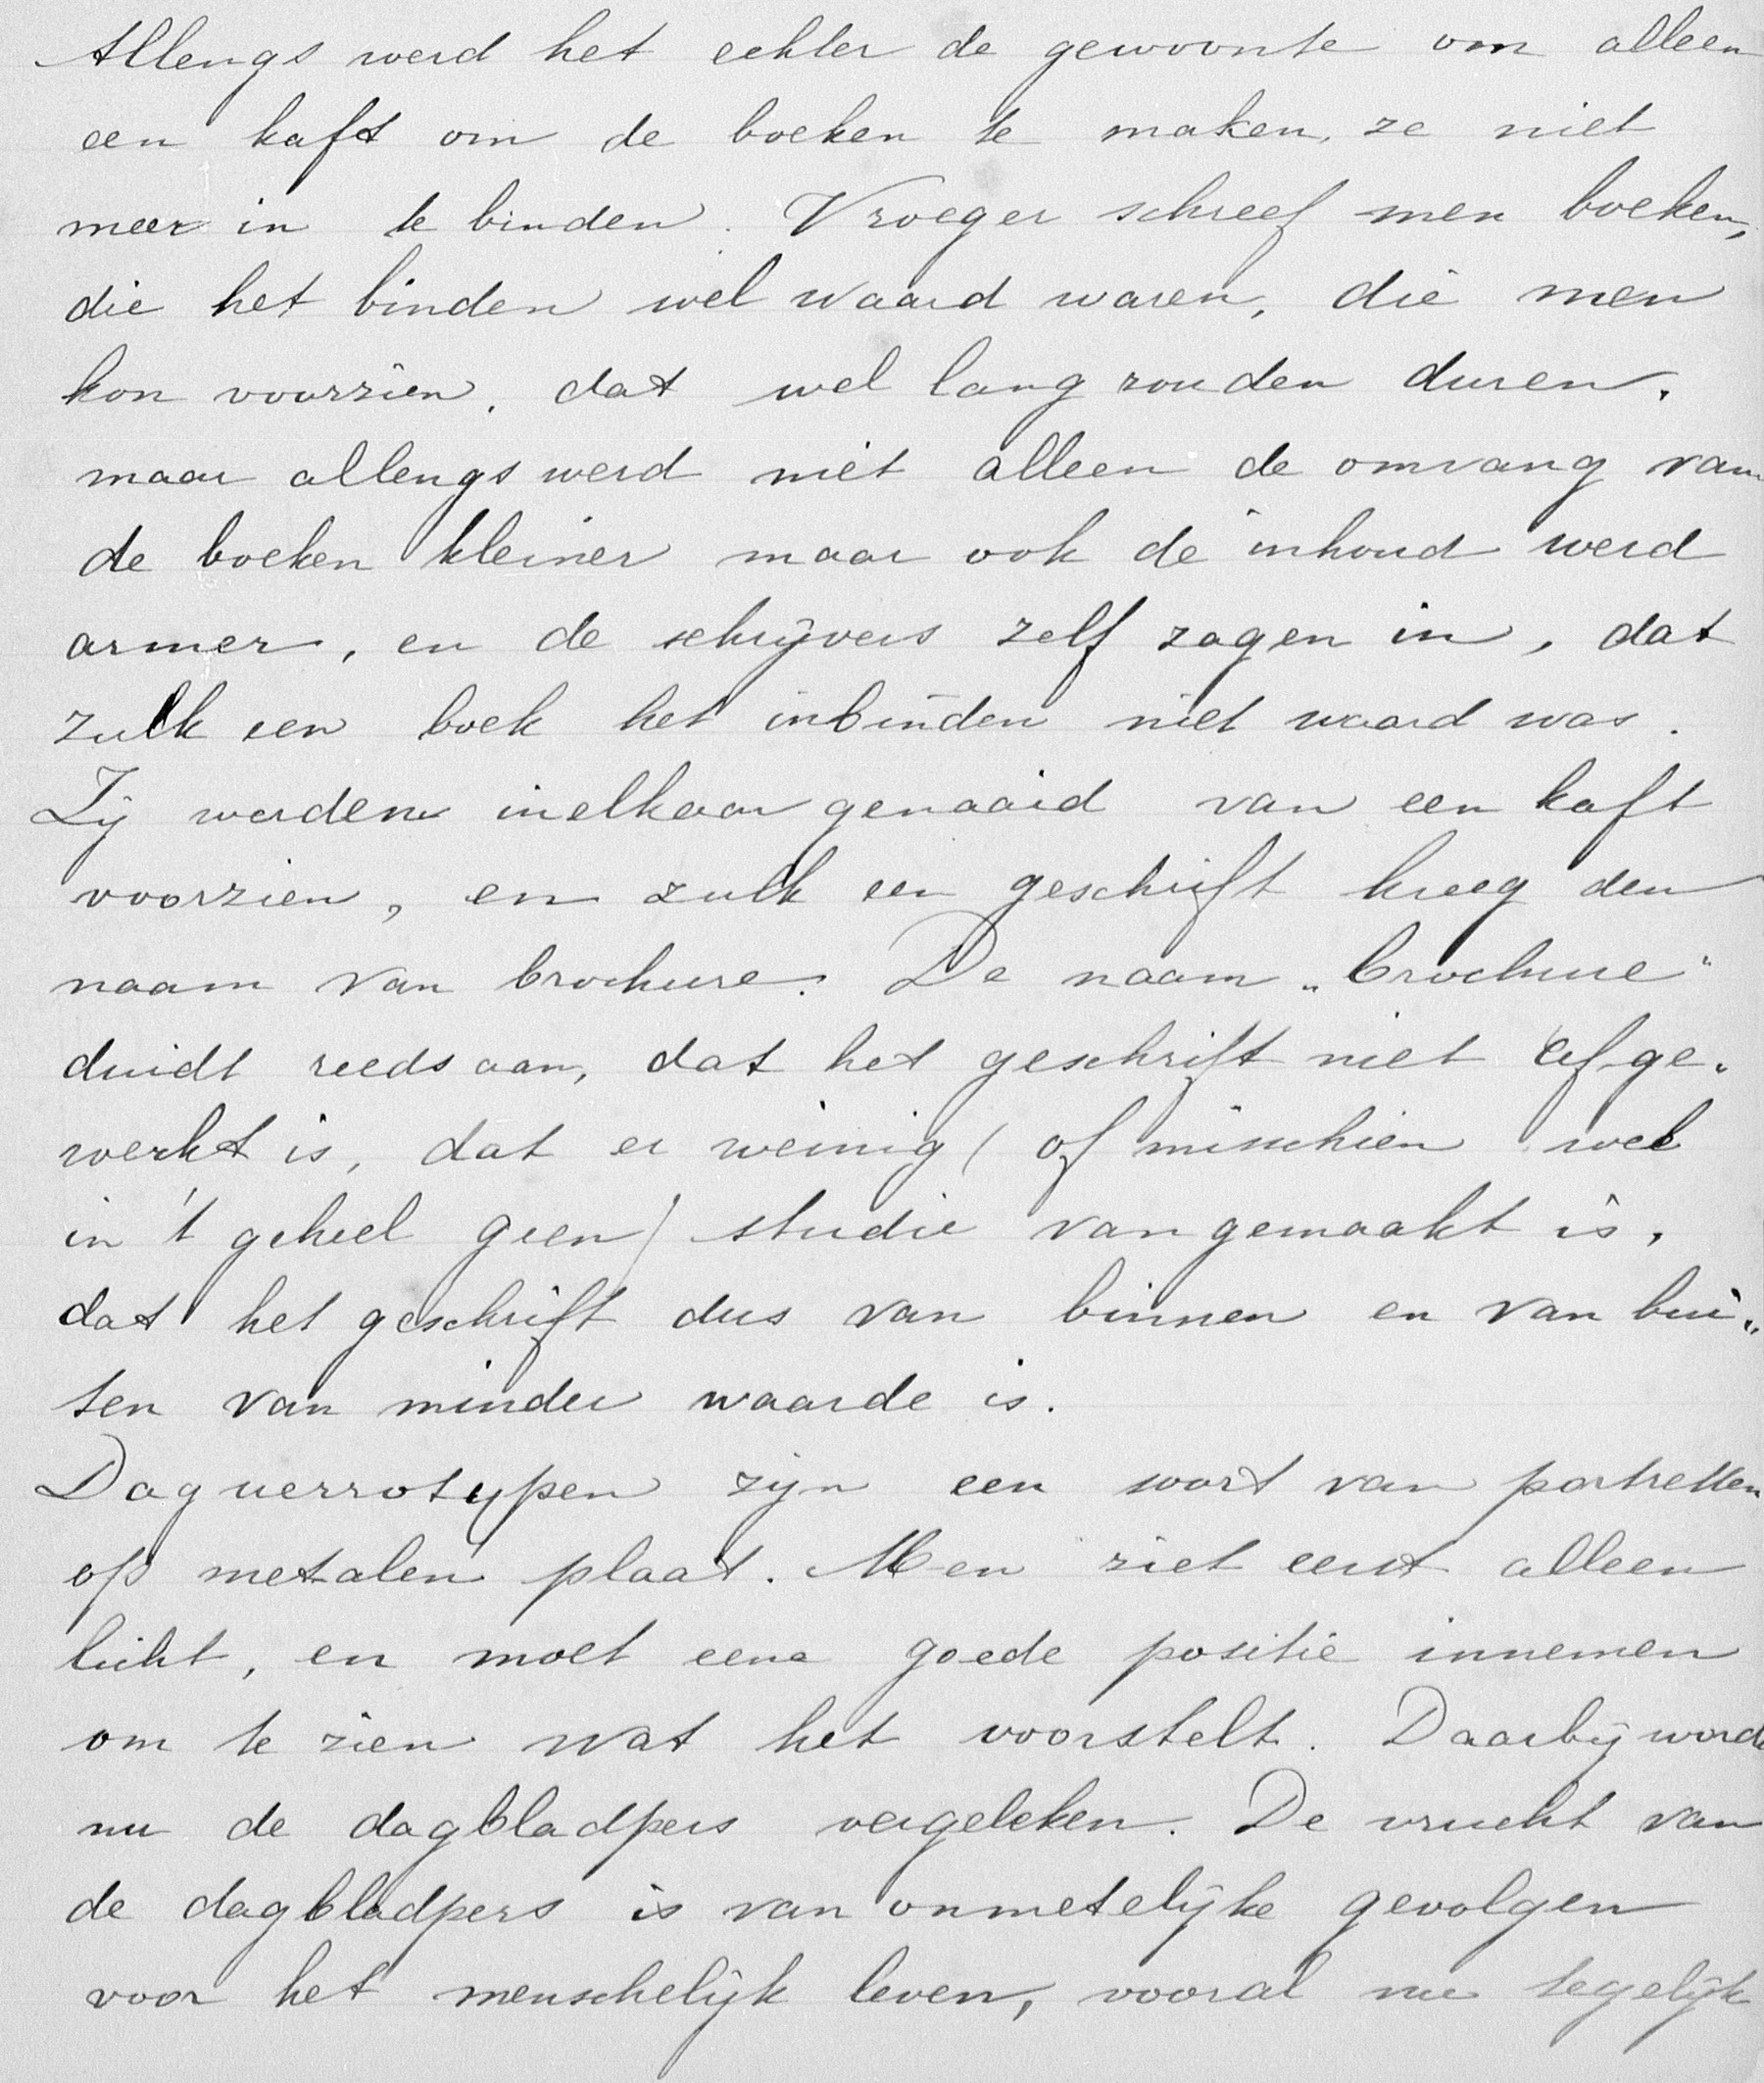 Allengs werd het echter de gewoonte om alleen
een kaft om de boeken te maken, ze niet
meer in te binden. Vroeger schreef men boeken,
die het binden wel waard waren, die men
kon voorzien, dat wel lang zouden duren.
maar allengs werd niet alleen de omvang van
de boeken kleiner maar ook de inhoud werd
armer, en de schrijvers zelf zagen in, dat
zulk een boek het inbinden niet waard was.
Zij werden inelkaar genaaid van een kaft
voorzien, en zulk een geschrift kreeg den
naam van brochure. De naam „brochure"
duidt reeds aan, dat het geschrift niet afge-
werkt is, dat er weinig (of misschien wel
in 't geheel geen) studie van gemaakt is,
dat het geschrift dus van binnen en van bui„
ten van minder waarde is.
Daguerrotypen zijn een soort van portretten
op metalen plaat. Men ziet eerst alleen
licht, en moet eene goede positie innemen
om te zien wat het voorstelt. Daarbij wordt
nu de dagbladpers vergeleken. De vrucht van
de dagbladpers is van onmetelijke gevolgen
voor het menschelijk leven, vooral nu tegelijk